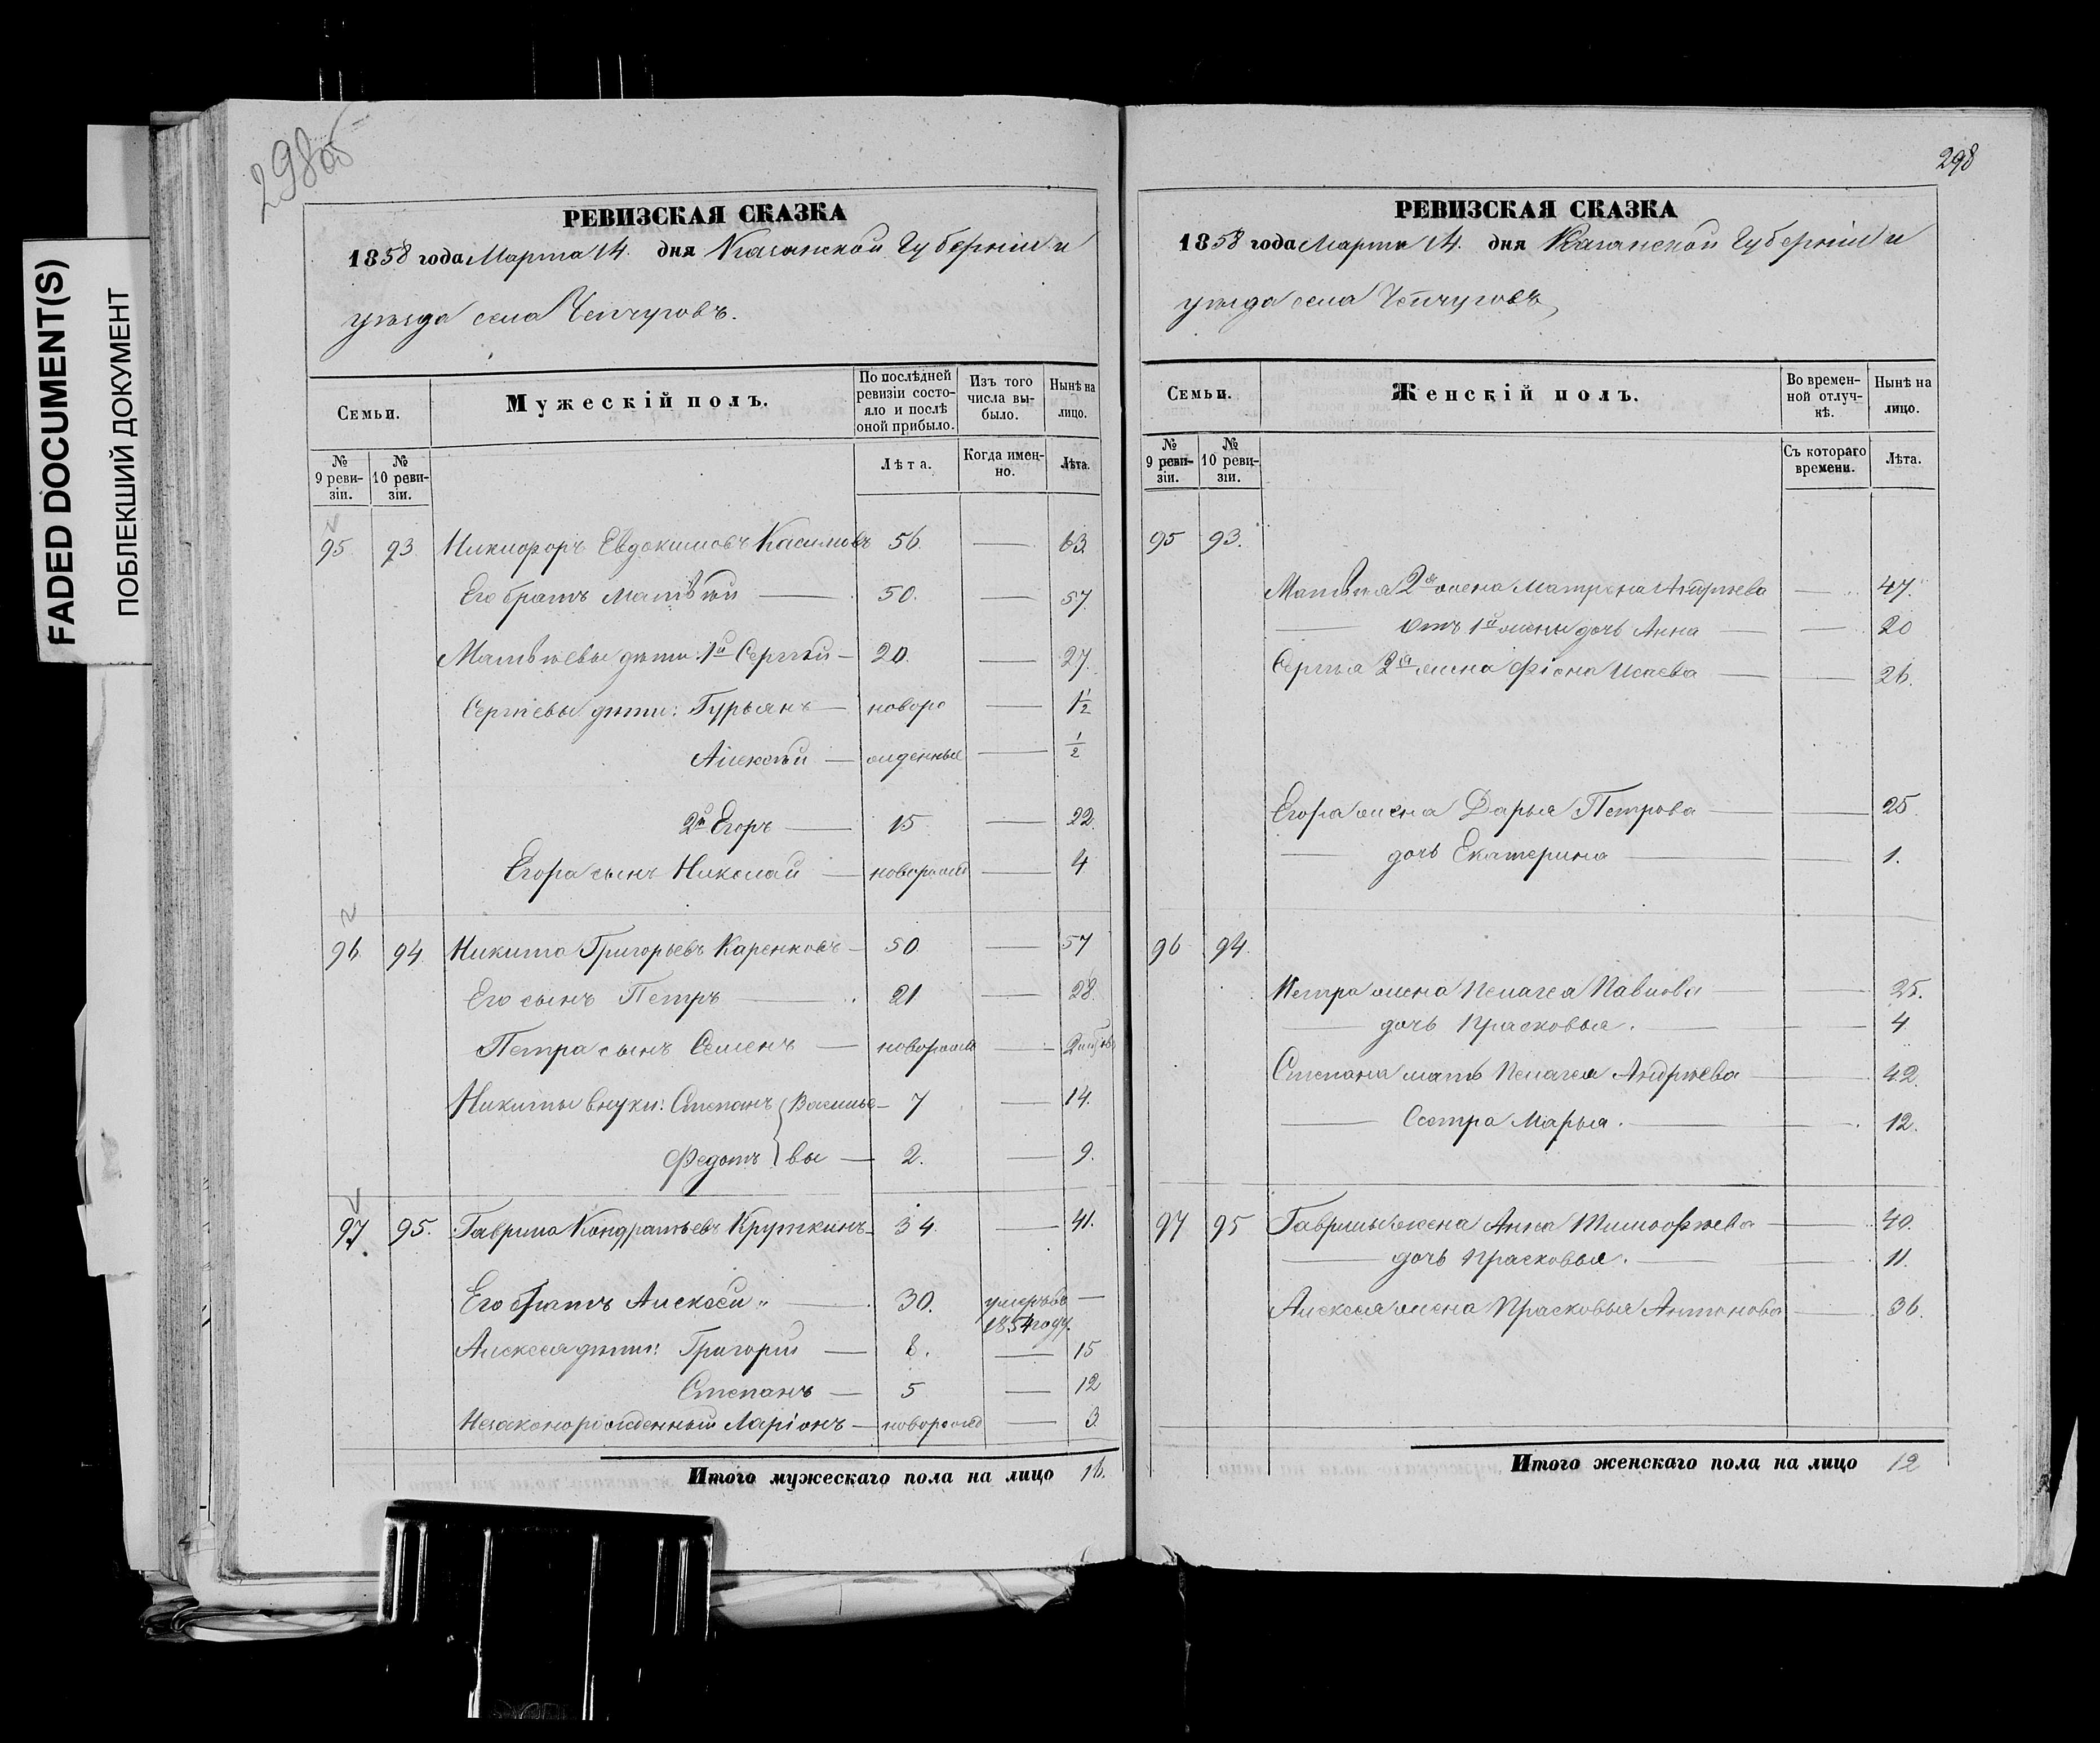 FADED DOCUMENT(S)
ПОБЛЕКШИЙ ДОКУМЕНТ
298об
РЕВИЗСКАЯ СКАЗКА
1858 года Марта 14. дня Казанской Губерніи и
уѣзда села Чепчуговъ.
Семьи.
Мужескій полъ.
По послѣдней ревизіи состояло и послѣ оной прибыло.
Изъ того числа выбыло.
Нынѣ на лицо.
№ 9 ревизіи.
№ 10 ревизіи.
Лѣта.
Когда именно.
Лѣта.
95 93 Никифоръ Евдокимовъ Касимовъ 56. — 63.
Его братъ Матвѣй — 50. — 57.
Матвѣевы дѣти: 1й Сергѣй — 20. — 27.
Сергѣевы дѣти: Гурьянъ — новоро — 1 1/2
Алексѣй — жденные — 1/2
2й Егоръ — 15 — 22.
Егора сынъ Николай — новорожд — 4
96. 94. Никита Григорьевъ Каренковъ — 50 — 57
Его сынъ Петръ — 21 — 28.
Петра сынъ Семенъ — новорожд —
Никиты внуки: Степанъ } Василье — 7 — 14.
Федотъ } вы — 2. — 9.
97. 95. Гаврила Кондратьевъ Круткинъ — 34. — 41.
Его братъ Алексѣй — 30. умеръ въ —
1854 году.
Алексея дѣти: Григорій — 8. — 15
Степанъ — 5 — 12
Незаконорожденный Ларіонъ — новорожд — 3
Итого мужескаго пола на лицо 16.
298
РЕВИЗСКАЯ СКАЗКА
1858 года Марта 14. дня Казанской Губерніи и
уѣзда села Чепчуговъ,
Семьи.
Женскій полъ.
Во временной отлучкѣ.
Нынѣ на лицо.
№ 9 ревизіи.
№ 10 ревизіи.
Съ котораго времени.
Лѣта.
95 93.
Матвѣя 2я жена Матрена Андрѣева — 47.
— Отъ 1й жены дочь Анна — — 20
Сергѣя 2я жена Фіона Исаева — — 26.
Егора жена Дарья Петрова — — 25.
— дочь Екатерина — — 1.
96 94.
Петра жена Пелагея Павлова — — 25.
— дочь Прасковья. — — 4
Степана мать Пелагея Андрѣева — 42.
— Сестра Марья. — — 12.
97 95 Гаврилы жена Анна Тимофѣева — — 40.
— дочь Прасковья. — — 11.
Алексея жена Прасковья Антонова — 36.
Итого женскаго пола на лицо 12